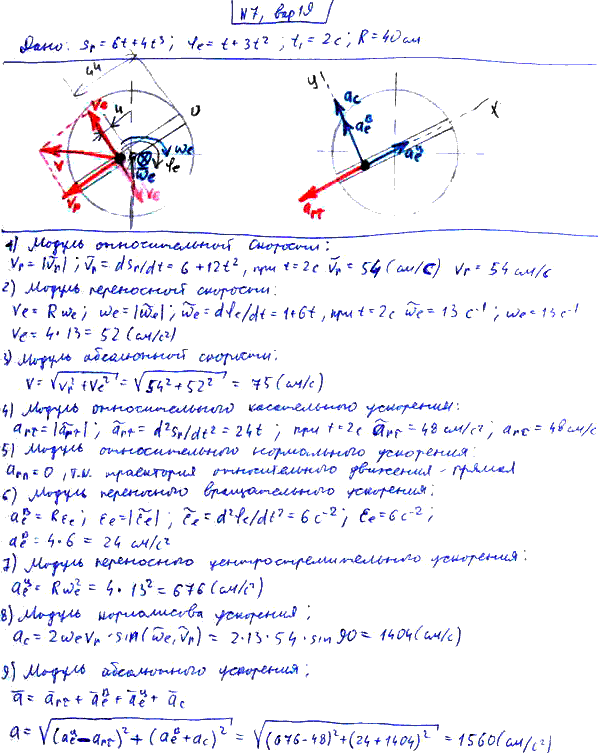 №7, вар19
Дано: Sr = 6t+4t³; φe = t+3t²; t₁ = 2c; R = 40см
ve
u
O
ωe
φe
v
ωe
vr
y
x
ac
aeᴮ
aeᶸ
arτ
1) Модуль относительной скорости:
vr = |ṽr|; ṽr = dSr/dt = 6+12t², при t=2c ṽr = 54 (см/с) vr = 54 см/с
2) Модуль переносной скорости:
ve = Rωe; ωe = |ω̃e|; ω̃e = dφe/dt = 1+6t, при t=2c ω̃e = 13 c⁻¹; ωe = 13 c⁻¹
ve = 4·13 = 52 (см/с²)
3) Модуль абсолютной скорости:
v = √(vr²+ve²) = √(54²+52²) = 75 (см/с)
4) Модуль относительного касательного ускорения:
arτ = |ãrτ|; ãrτ = d²Sr/dt² = 24t; при t=2c ãrτ = 48 см/с²; arτ = 48 см/с
5) Модуль относительного нормального ускорения:
arn = 0, т.к. траектория относительного движения - прямая
6) Модуль переносного вращательного ускорения:
aeᴮ = Rεe; εe = |ε̃e|; ε̃e = d²φe/dt² = 6 c⁻²; εe = 6 c⁻²;
aeᴮ = 4·6 = 24 см/с²
7) Модуль переносного центростремительного ускорения:
aeᶸ = Rωe² = 4·13² = 676 (см/с²)
8) Модуль кориолисова ускорения;
ac = 2ωevr·sin(ω̄e, v̄r) = 2·13·54·sin 90 = 1404 (см/с)
9) Модуль абсолютного ускорения;
ā = ārτ + āeᴮ + āeᶸ + āc
a = √((aeᶸ - arτ)² + (aeᴮ + ac)²) = √((676-48)²+(24+1404)²) = 1560 (см/с²)